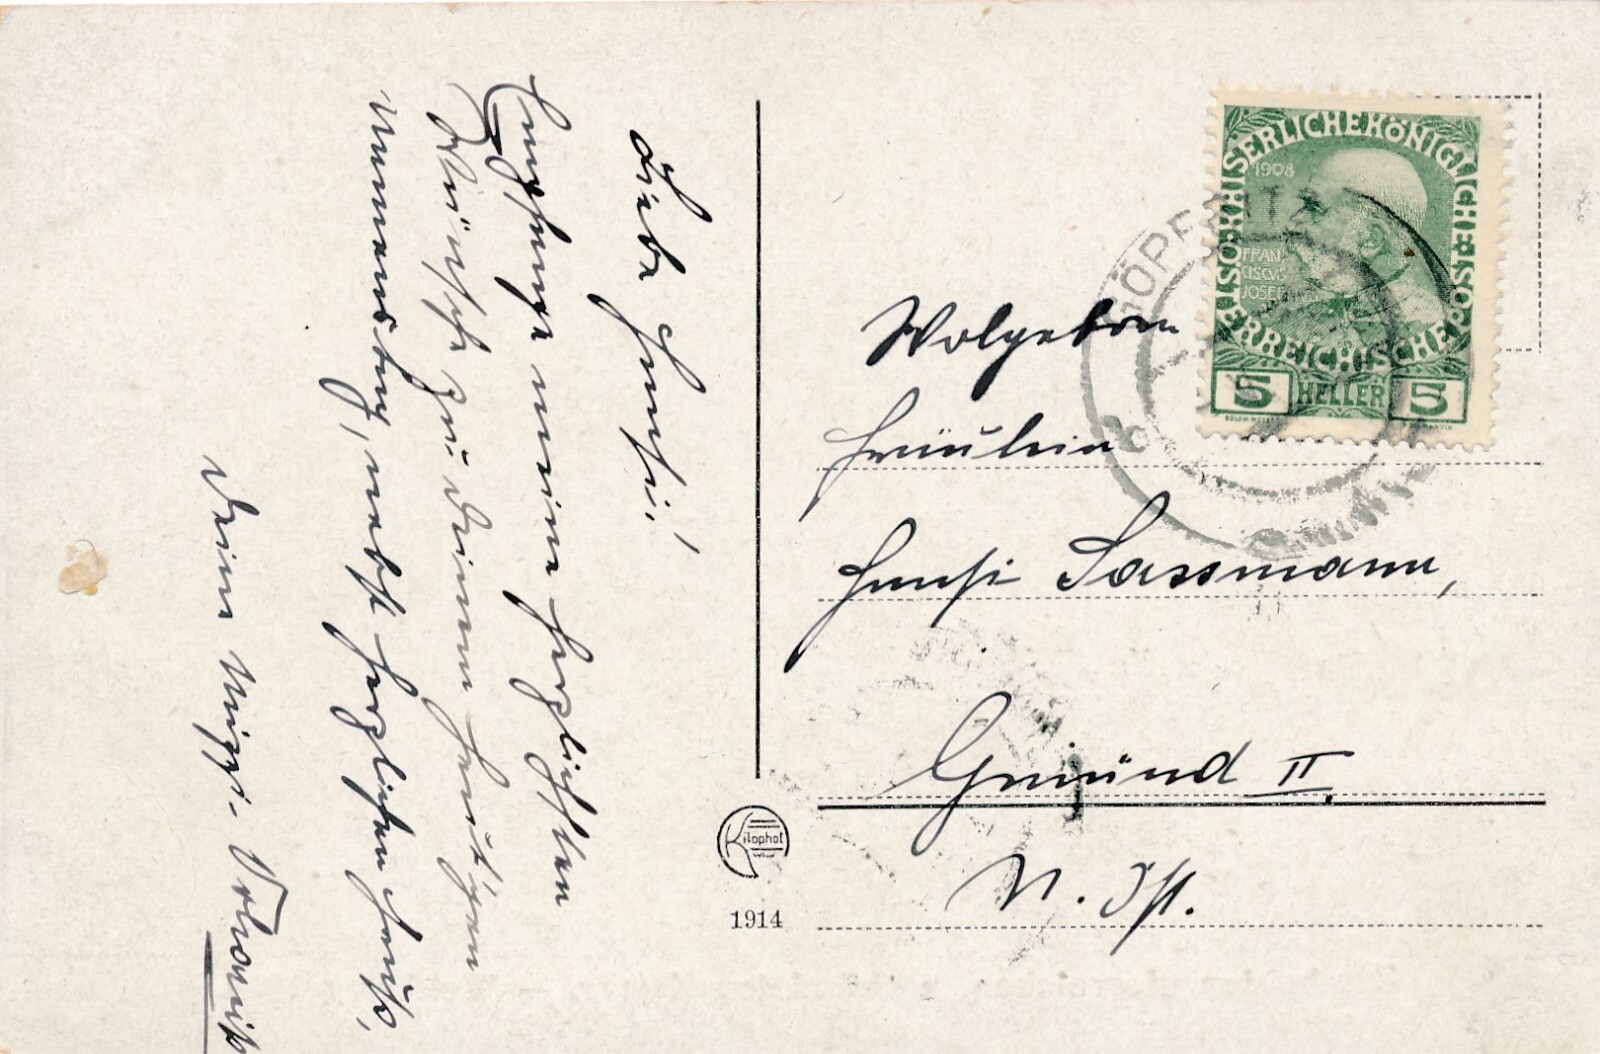 Liebe Hansi!
Empfange meine herzlichsten
Wünsche zu Deinem heutigen
Namenstag, nebst herzlichen Gruß,
Deine Mizzi.
Wolgeboren
Fräulein
Hansi Sassmann,
Gmünd II.
N. Öst.
KAISERLICHE KÖNIGLICHE ÖSTERREICHISCHE POST
1908
FRAN
CISCVS
JOSEF
5 HELLER 5
GÖPFRITZ
Kilophot
Wien
1914